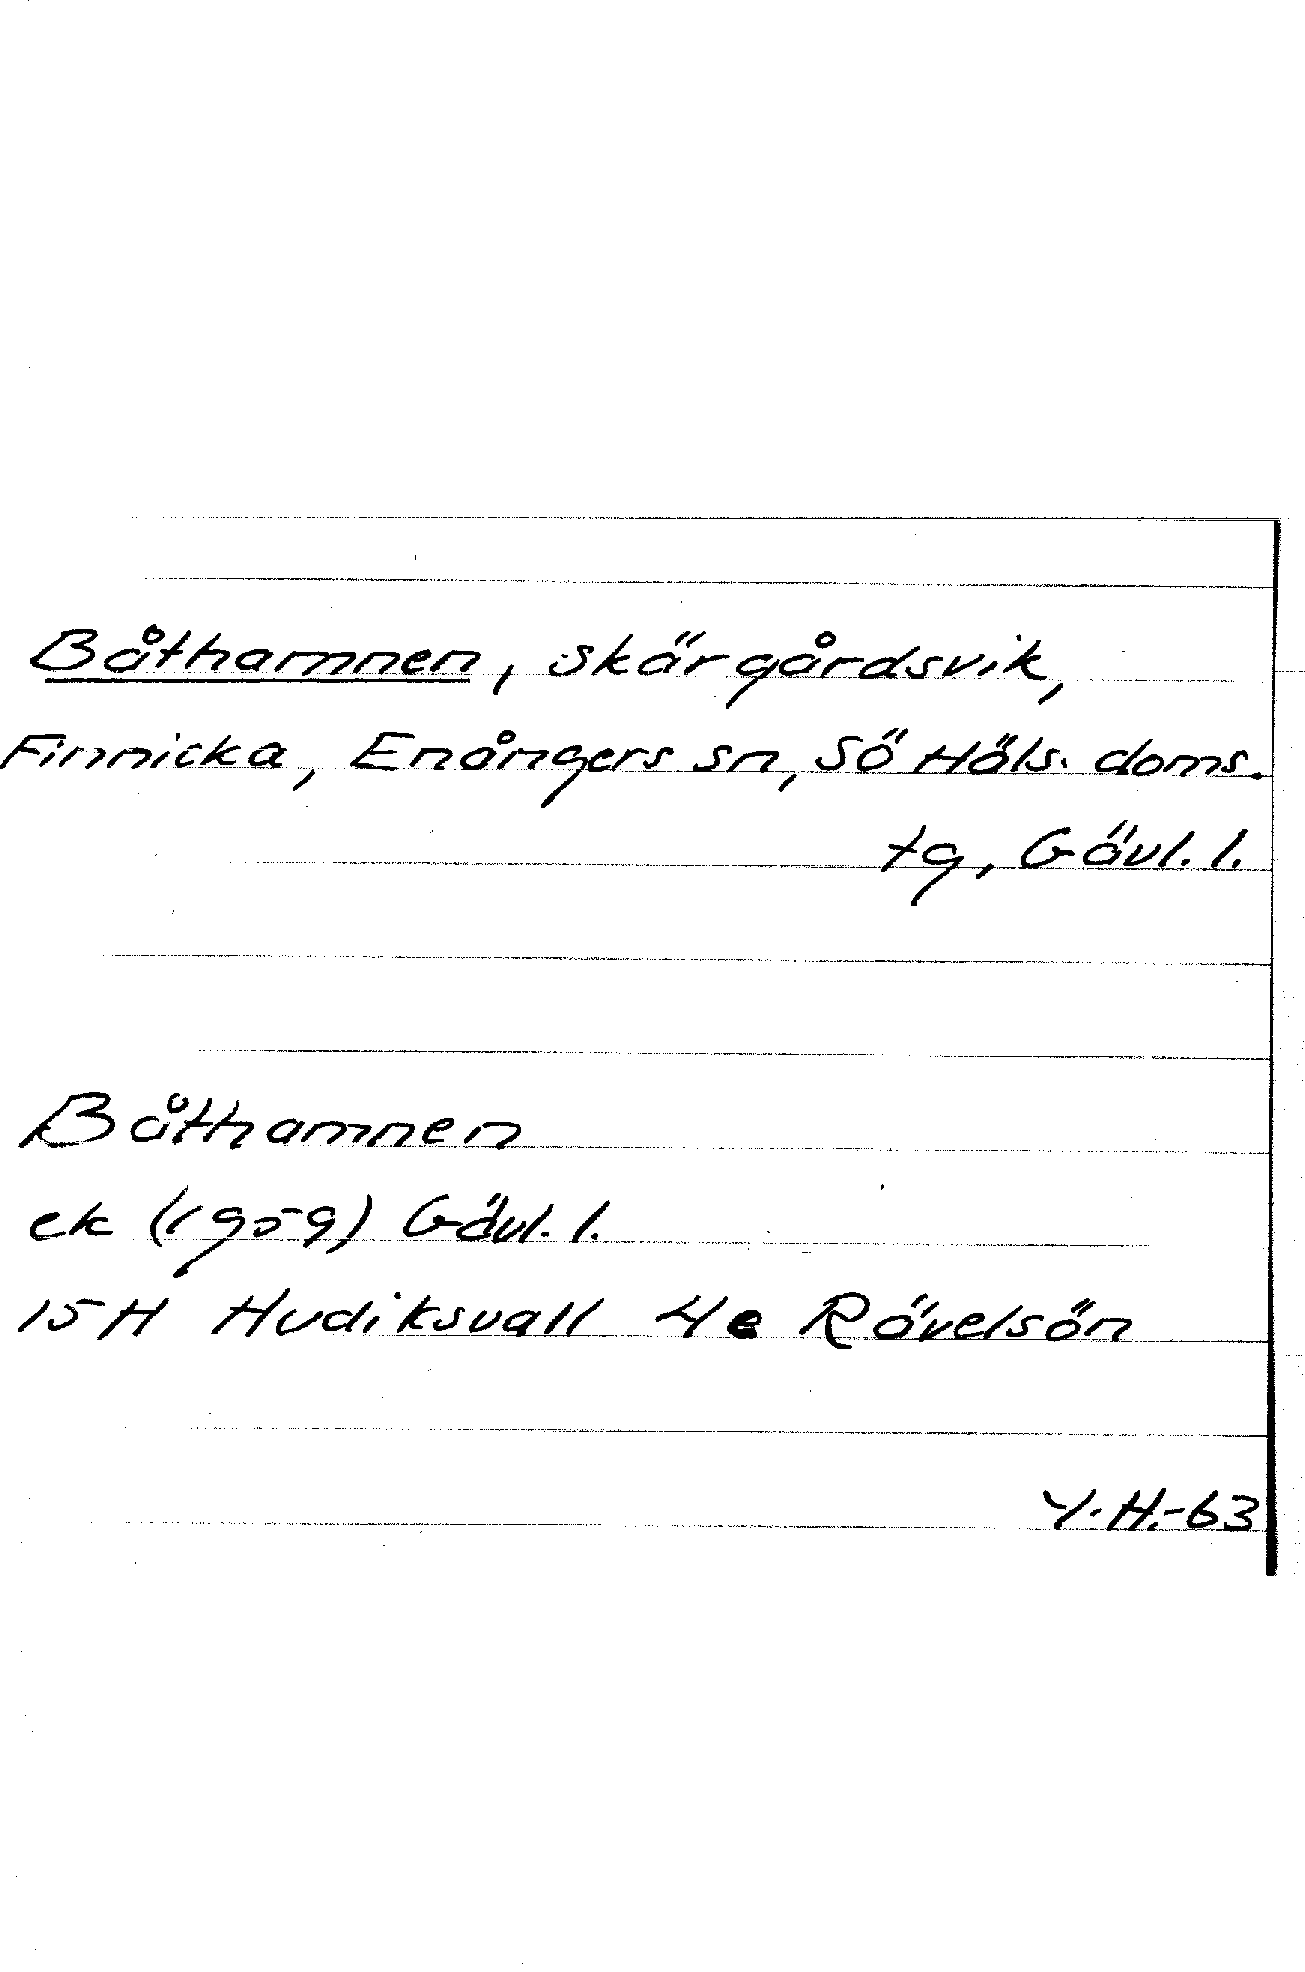 Båthamnen, skärgårdsvik,
Finnicka, Enångers sn, Sö Häls. doms.
tg, Gävl. l.
Båthamnen
ek (1959) Gävl. l.
15H Hudiksvall 4e Rävelsön
Y.H.-63